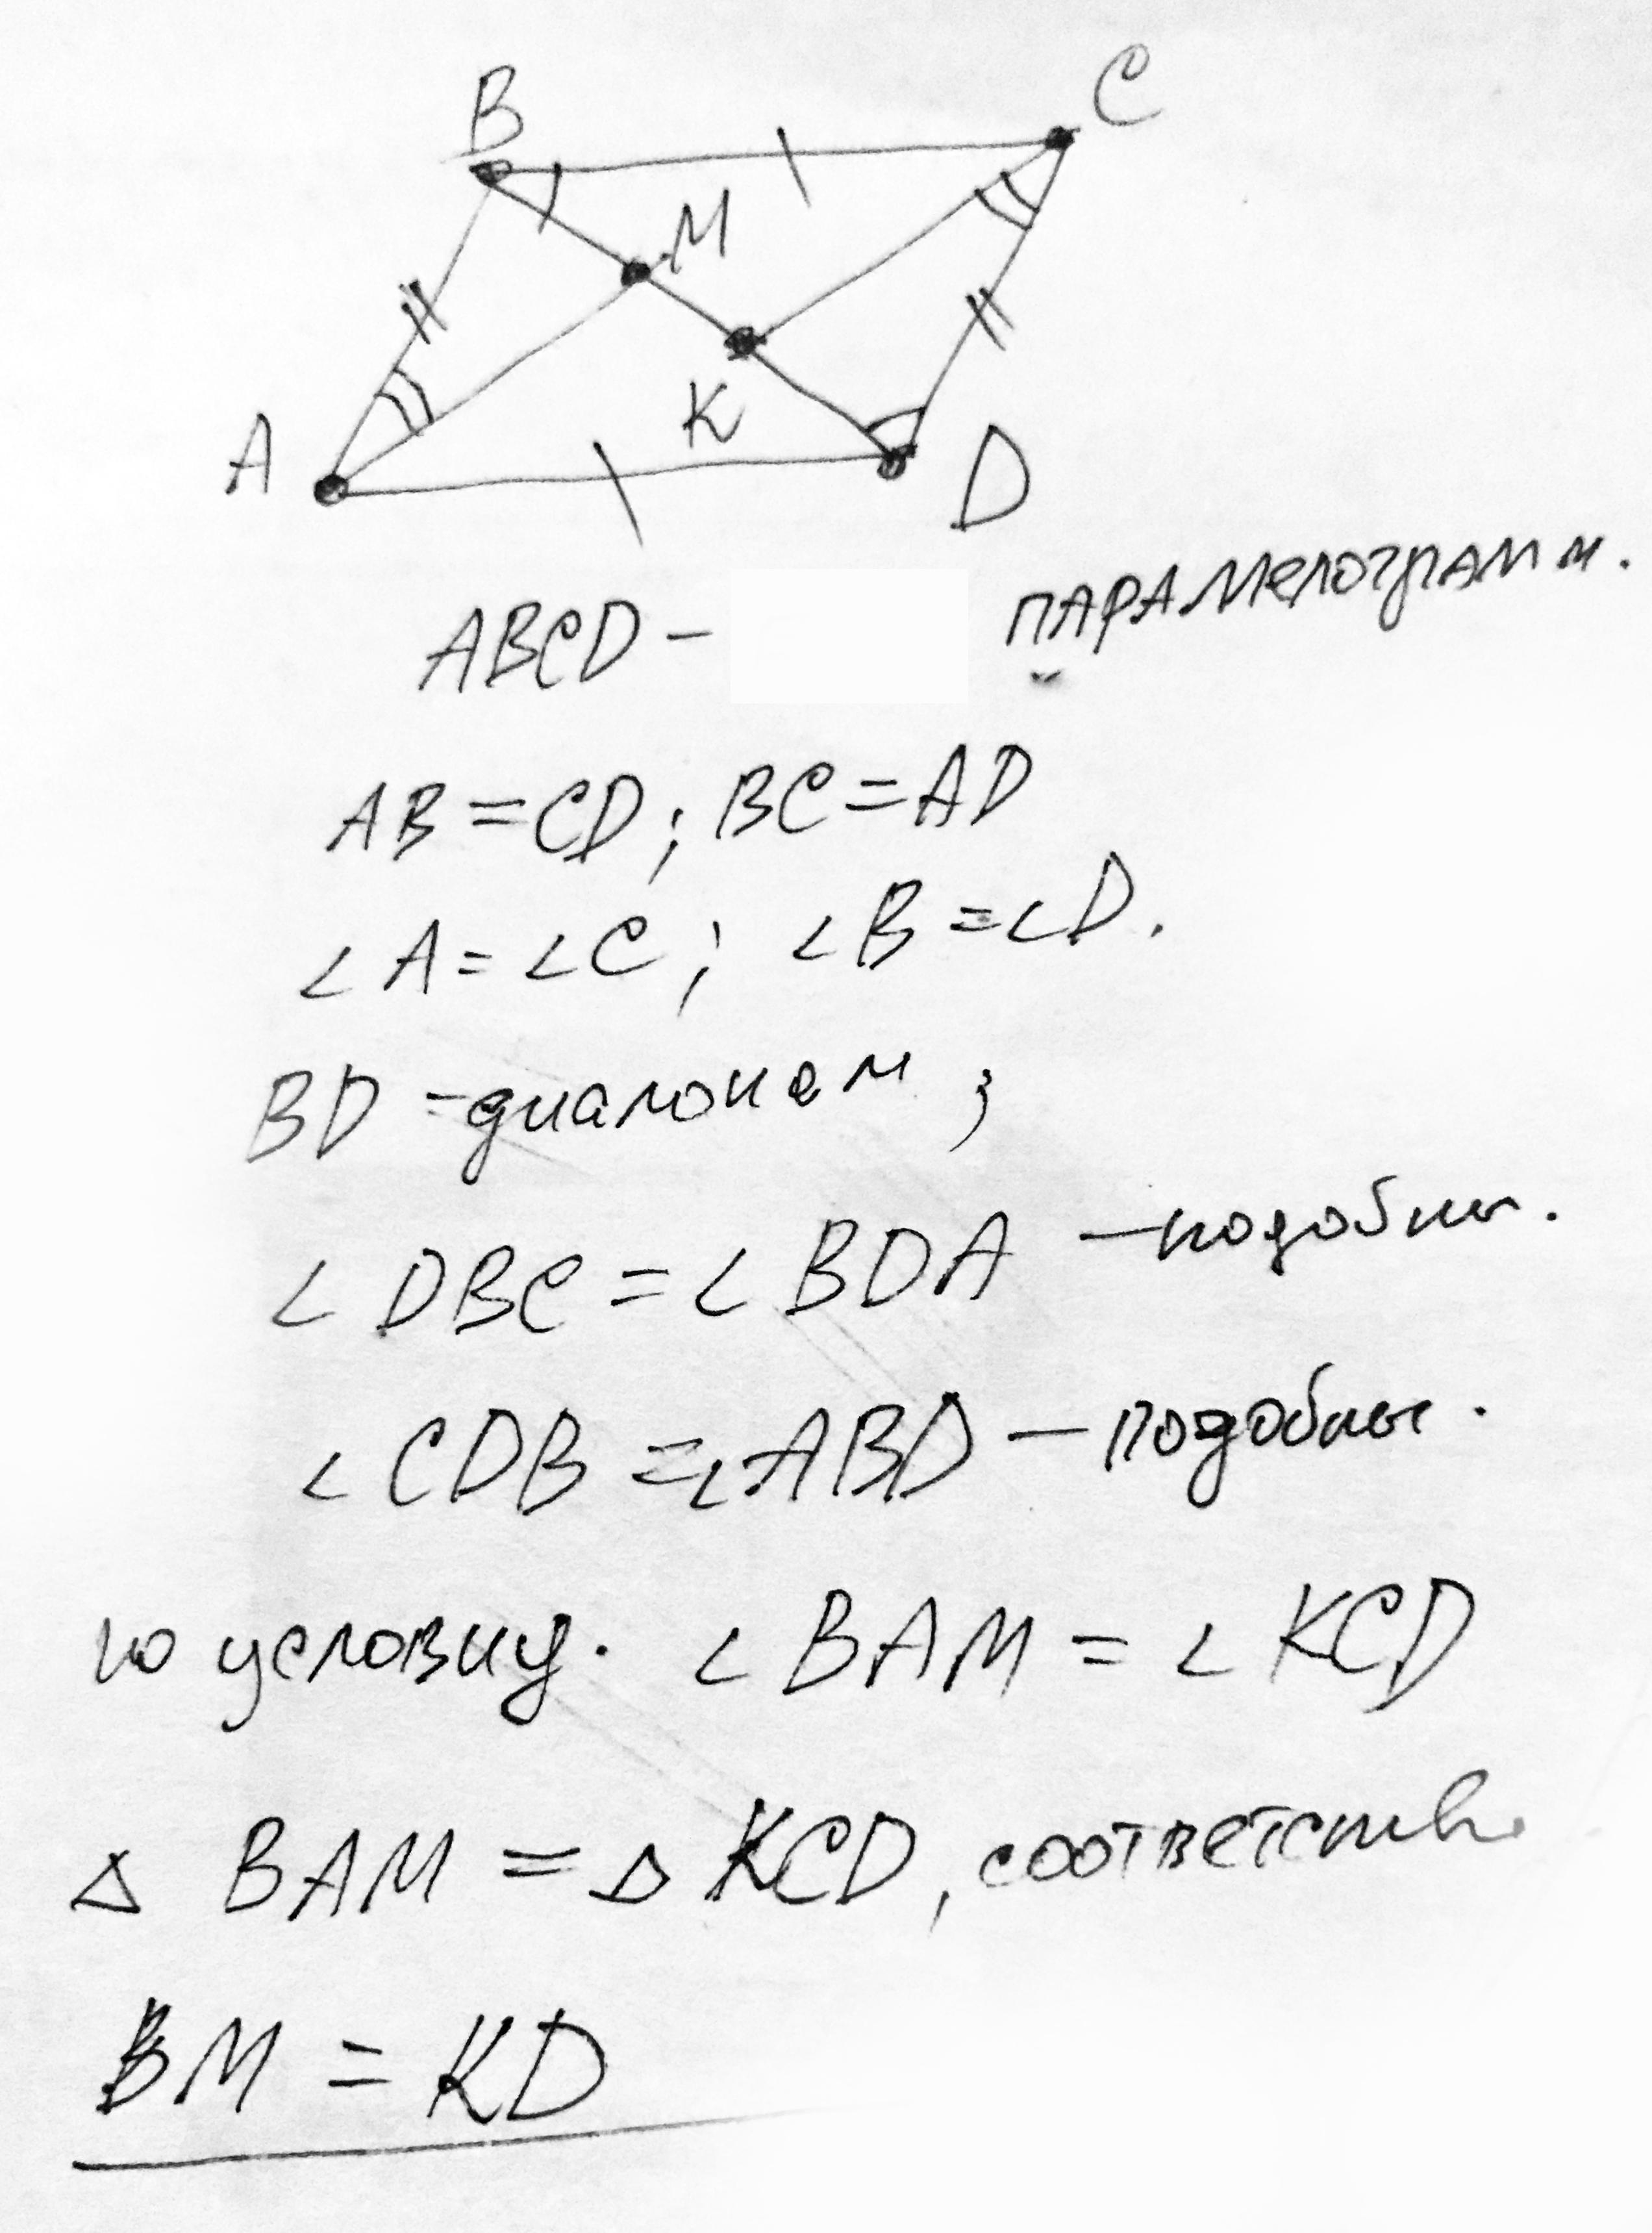 B
C
M
K
A
D
ABCD - параллелограмм.
AB = CD ; BC = AD
∠A = ∠C ; ∠B = ∠D.
BD - ;
∠DBC = ∠BDA - подобны.
∠CDB = ∠ABD - подобны.
по условиу. ∠BAM = ∠KCD
△ BAM = △ KCD, соответств.
BM = KD